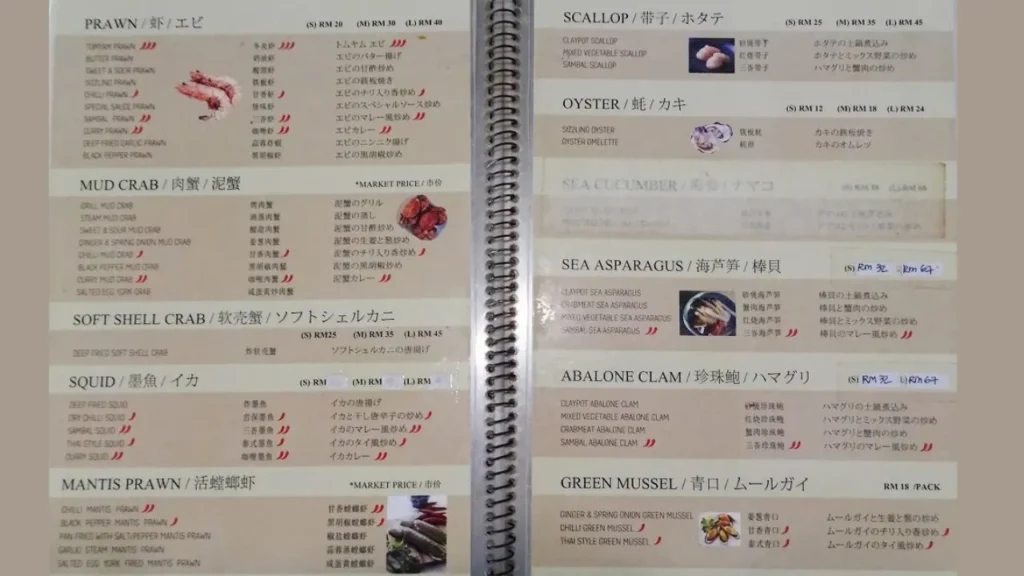 PRAWN / 虾 / エビ (S) RM 20 (M) RM 30 (L) RM 40
TOMYAM PRAWN 冬炎虾 トムヤム エビ
BUTTER PRAWN 奶油虾 エビのバター揚げ
SWEET & SOUR PRAWN 酸甜虾 エビの甘酢炒め
SIZZLING PRAWN 铁板虾 エビの鉄板焼き
CHILLI PRAWN 甘香虾 エビのチリ入り香炒め
SPECIAL SAUCE PRAWN エビのスペシャルソース炒め
SAMBAL PRAWN 三峇虾 エビのマレー風炒め
CURRY PRAWN 咖喱虾 エビカレー
DEEP FRIED GARLIC PRAWN エビのニンニク揚げ
BLACK PEPPER PRAWN 黑胡椒虾 エビの黒胡椒炒め
MUD CRAB / 肉蟹 / 泥蟹 *MARKET PRICE / 市价
GRILL MUD CRAB 烤肉蟹 泥蟹のグリル
STEAM MUD CRAB 泥蟹の蒸し
SWEET & SOUR MUD CRAB 酸甜肉蟹 泥蟹の甘酢炒め
GINGER & SPRING ONION MUD CRAB 姜葱肉蟹 泥蟹の生姜と葱炒め
CHILLI MUD CRAB 甘香肉蟹 泥蟹のチリ入り香炒め
BLACK PEPPER MUD CRAB 黑胡椒肉蟹 泥蟹の黒胡椒炒め
CURRY MUD CRAB 咖喱肉蟹 泥蟹カレー
SALTED EGG YORK CRAB 咸蛋黄炒肉蟹
SOFT SHELL CRAB / 软壳蟹 / ソフトシェルカニ
(S) RM25 (M) RM 35 (L) RM 45
DEEP FRIED SOFT SHELL CRAB 炸软壳蟹 ソフトシェルカニの唐揚げ
SQUID / 墨魚 / イカ (S) RM (M) RM (L) RM
DEEP FRIED SQUID 炸墨魚 イカの唐揚げ
DRY CHILLI SQUID 宫保墨魚 イカと干し唐辛子の炒め
SAMBAL SQUID 三峇墨魚 イカのマレー風炒め
THAI STYLE SQUID 泰式墨魚 イカのタイ風炒め
CURRY SQUID 咖喱墨魚 イカカレー
MANTIS PRAWN / 活螳螂虾 *MARKET PRICE / 市价
CHILLI MANTIS PRAWN 甘香螳螂虾
BLACK PEPPER MANTIS PRAWN 黑胡椒螳螂虾
PAN FRIED WITH SALT/PEPPER MANTIS PRAWN 椒盐螳螂虾
GARLIC STEAM MANTIS PRAWN 蒜蓉蒸螳螂虾
SALTED EGG YORK FRIED MANTIS PRAWN 咸蛋黄螳螂虾
SCALLOP / 带子 / ホタテ (S) RM 25 (M) RM 35 (L) RM 45
CLAYPOT SCALLOP 砂煲带子 ホタテの土鍋煮込み
MIXED VEGETABLE SCALLOP 红烧带子 ホタテとミックス野菜の炒め
SAMBAL SCALLOP 三峇带子 ハマグリと蟹肉の炒め
OYSTER / 蚝 / カキ (S) RM 12 (M) RM 18 (L) RM 24
SIZZLING OYSTER 铁板蚝 カキの鉄板焼き
OYSTER OMELETTE カキのオムレツ
SEA CUCUMBER / 海参 / ナマコ
SEA ASPARAGUS / 海芦笋 / 棒貝 (S) RM 32 (L) RM 64
CLAYPOT SEA ASPARAGUS 砂煲海芦笋 棒貝の土鍋煮込み
CRABMEAT SEA ASPARAGUS 蟹肉海芦笋 棒貝と蟹肉の炒め
MIXED VEGETABLE SEA ASPARAGUS 红烧海芦笋 棒貝とミックス野菜の炒め
SAMBAL SEA ASPARAGUS 三峇海芦笋 棒貝のマレー風炒め
ABALONE CLAM / 珍珠鲍 / ハマグリ (S) RM 32 (L) RM 64
CLAYPOT ABALONE CLAM 砂煲珍珠鲍 ハマグリの土鍋煮込み
MIXED VEGETABLE ABALONE CLAM 红烧珍珠鲍 ハマグリとミックス野菜の炒め
CRABMEAT ABALONE CLAM 蟹肉珍珠鲍 ハマグリと蟹肉の炒め
SAMBAL ABALONE CLAM 三峇珍珠鲍 ハマグリのマレー風炒め
GREEN MUSSEL / 青口 / ムールガイ RM 18 /PACK
GINGER & SPRING ONION GREEN MUSSEL 姜葱青口 ムールガイと生姜と葱の炒め
CHILLI GREEN MUSSEL 甘香青口 ムールガイのチリ入り香炒め
THAI STYLE GREEN MUSSEL 泰式青口 ムールガイのタイ風炒め